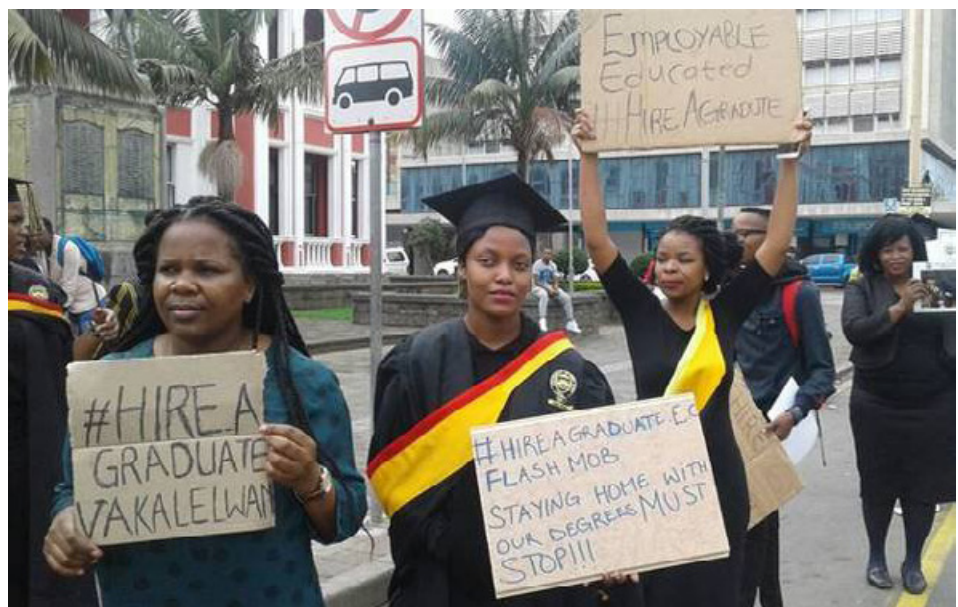 EMPLOYABLE
Educated
#HIRE AGRADUTE
#HIRE.A
GRADUATE
VAKALELWANI
#HIREAGRADUATE.EC
FLASH MOB
STAYING HOME WITH
OUR DEGREES MUST
STOP!!!
HIRE